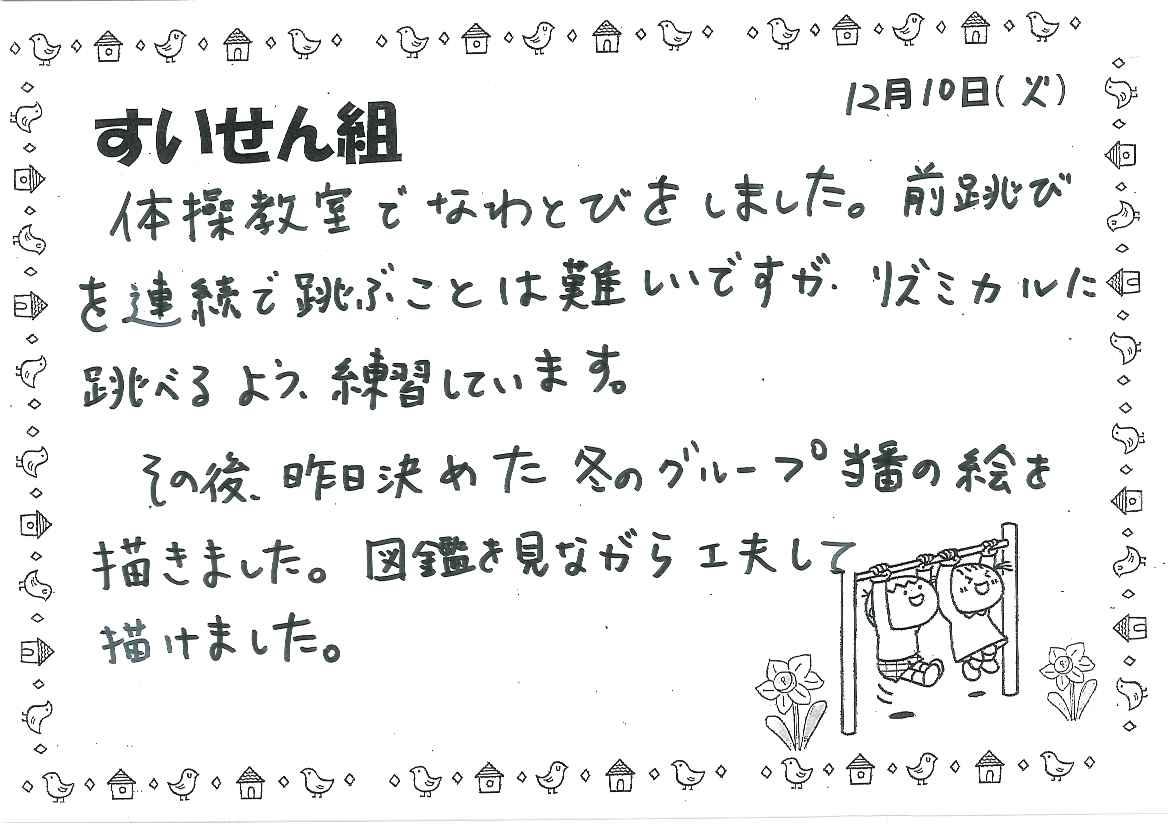 12月10日(火)
すいせん組
体操教室でなわとびをしました。前跳び
を連続で跳ぶことは難しいですが、リズミカルに
跳べるよう、練習しています。
その後、昨日決めた冬のグループ当番の絵を
描きました。図鑑を見ながら工夫して
描けました。